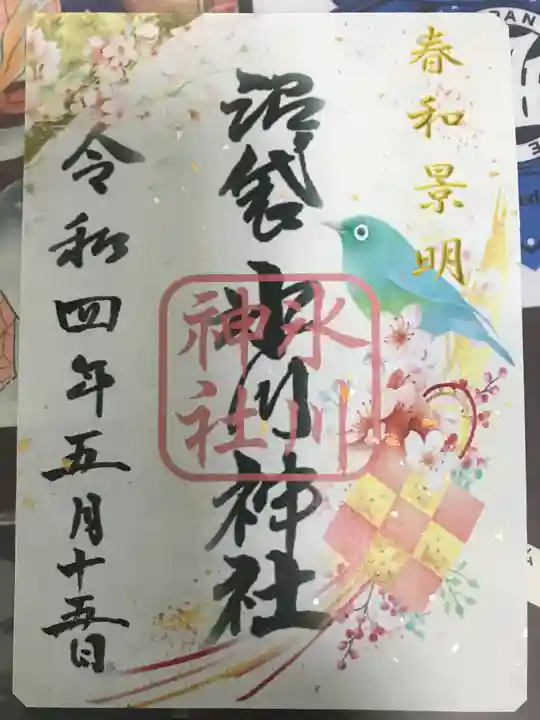 春和景明
沼袋 氷川神社
氷川
神社
令和四年五月十五日